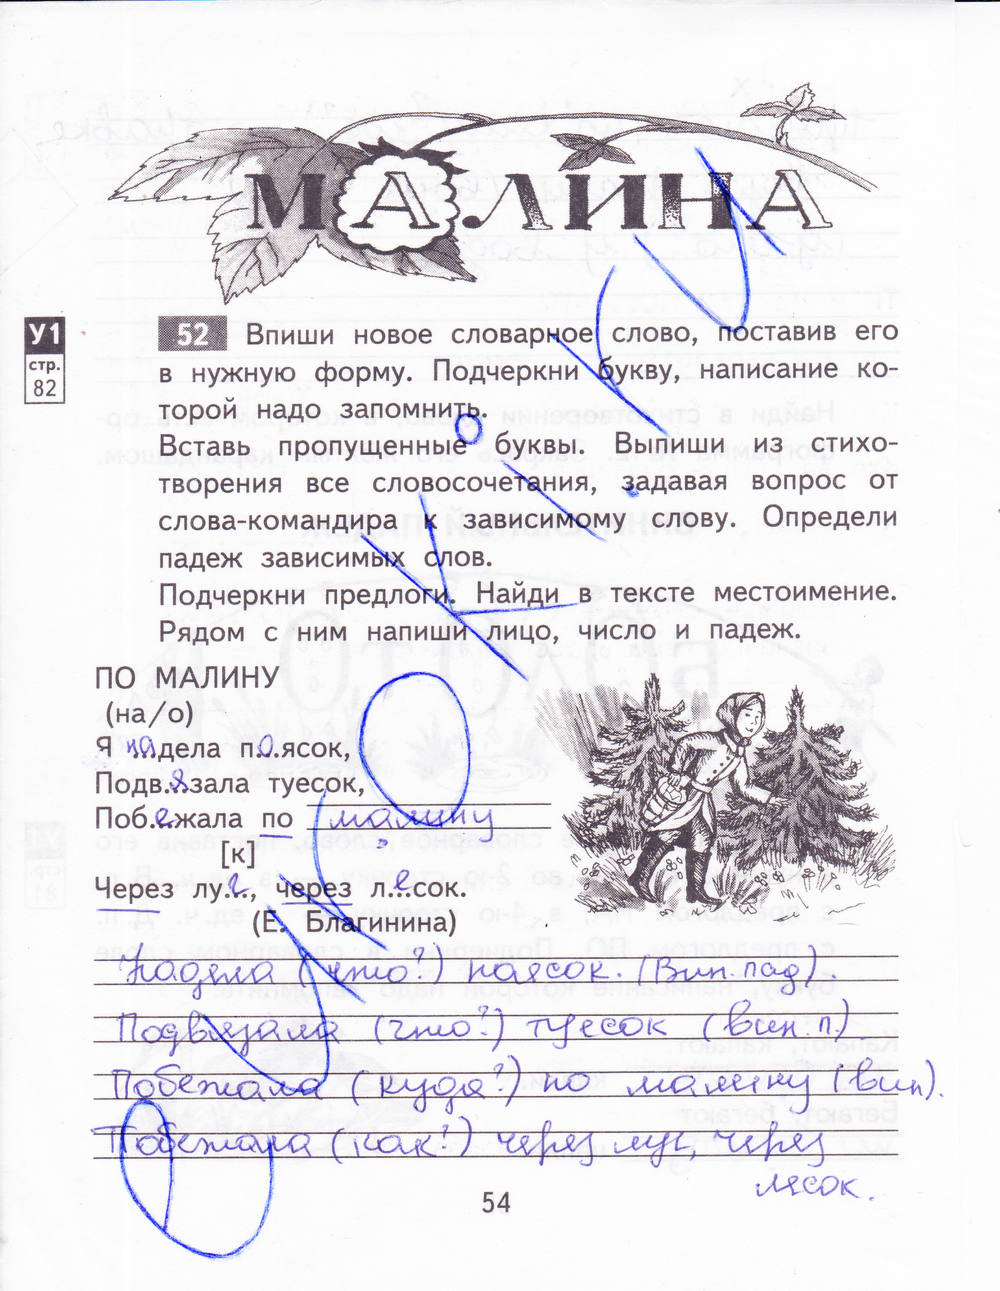 МАЛИНА
У1
стр.
82
52 Впиши новое словарное слово, поставив его
в нужную форму. Подчеркни букву, написание ко-
торой надо запомнить.
Вставь пропущенные буквы. Выпиши из стихо-
творения все словосочетания, задавая вопрос от
слова-командира к зависимому слову. Определи
падеж зависимых слов.
Подчеркни предлоги. Найди в тексте местоимение.
Рядом с ним напиши лицо, число и падеж.
ПО МАЛИНУ
(на/о)
Я надела поясок,
Подвязала туесок,
Побежала по малину
[к]
Через луг, через лесок.
(Е. Благинина)
Надела (что?) поясок. (Вин. пад).
Подвязала (что?) туесок (вин. п.)
Побежала (куда?) по малину (вин).
Побежала (как?) через луг, через
лесок.
54